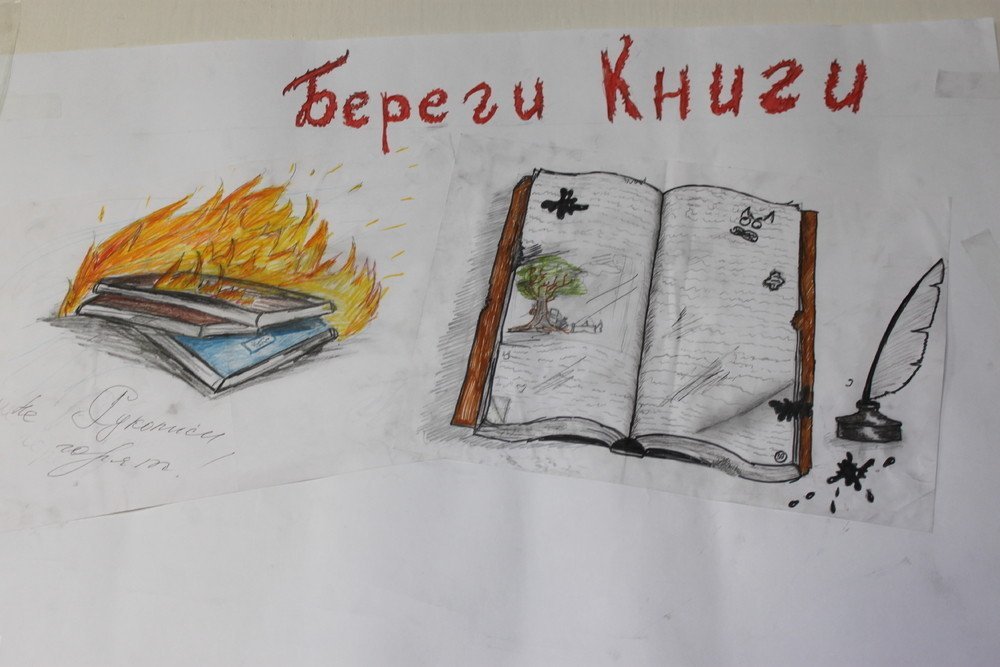 Береги Книги
не Рукописи
горят!